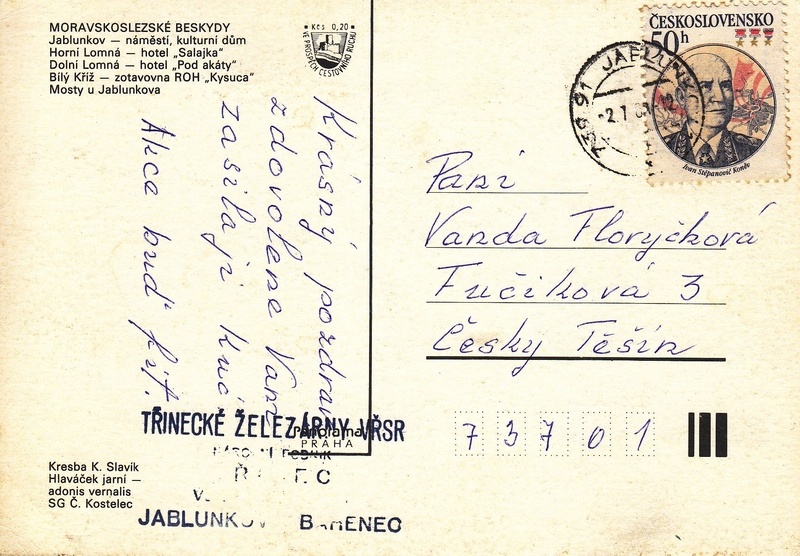 MORAVSKOSLEZSKÉ BESKYDY
Jablunkov — náměstí, kulturní dům
Horní Lomná — hotel „Salajka“
Dolní Lomná — hotel „Pod akáty“
Bílý Kříž — zotavovna ROH „Kysuca“
Mosty u Jablunkova
Kčs 0,20
VE PROSPĚCH CESTOVNÍHO RUCHU
ČESKOSLOVENSKO
50h
Ivan Štěpanovič Koněv
739 91 JABLUNKOV
Krásný pozdrav
zdovolene Vam
zasílají Kuci
Akce buď fit.
Paní
Vanda Floryčková
Fučíková 3
Český Těšín
73701
TŘINECKÉ ŽELEZÁRNY VŘSR
Panorama
PRAHA
JABLUNKOV
Kresba K. Slavík
Hlaváček jarní —
adonis vernalis
SG Č. Kostelec